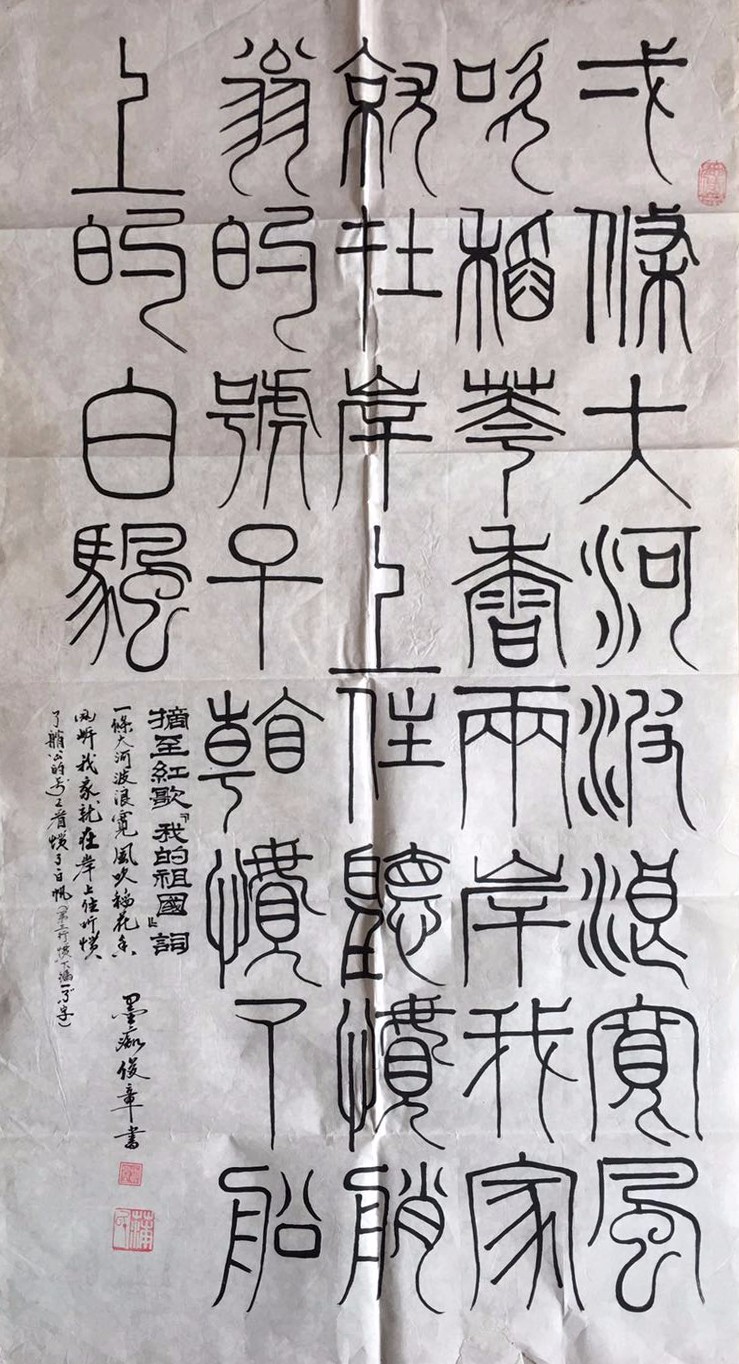 弌條大河波浪寬風
吹稻華香兩岸我家
就在岸上住聽慣艄
翁的號子看慣了船
上的白颿
摘至紅歌『我的祖國』詞
一條大河波浪寬風吹稻花香
两岸我家就在岸上住听惯
了艄公的号子看惯了白帆（第三行慣下漏一了字）
墨痴俊章書